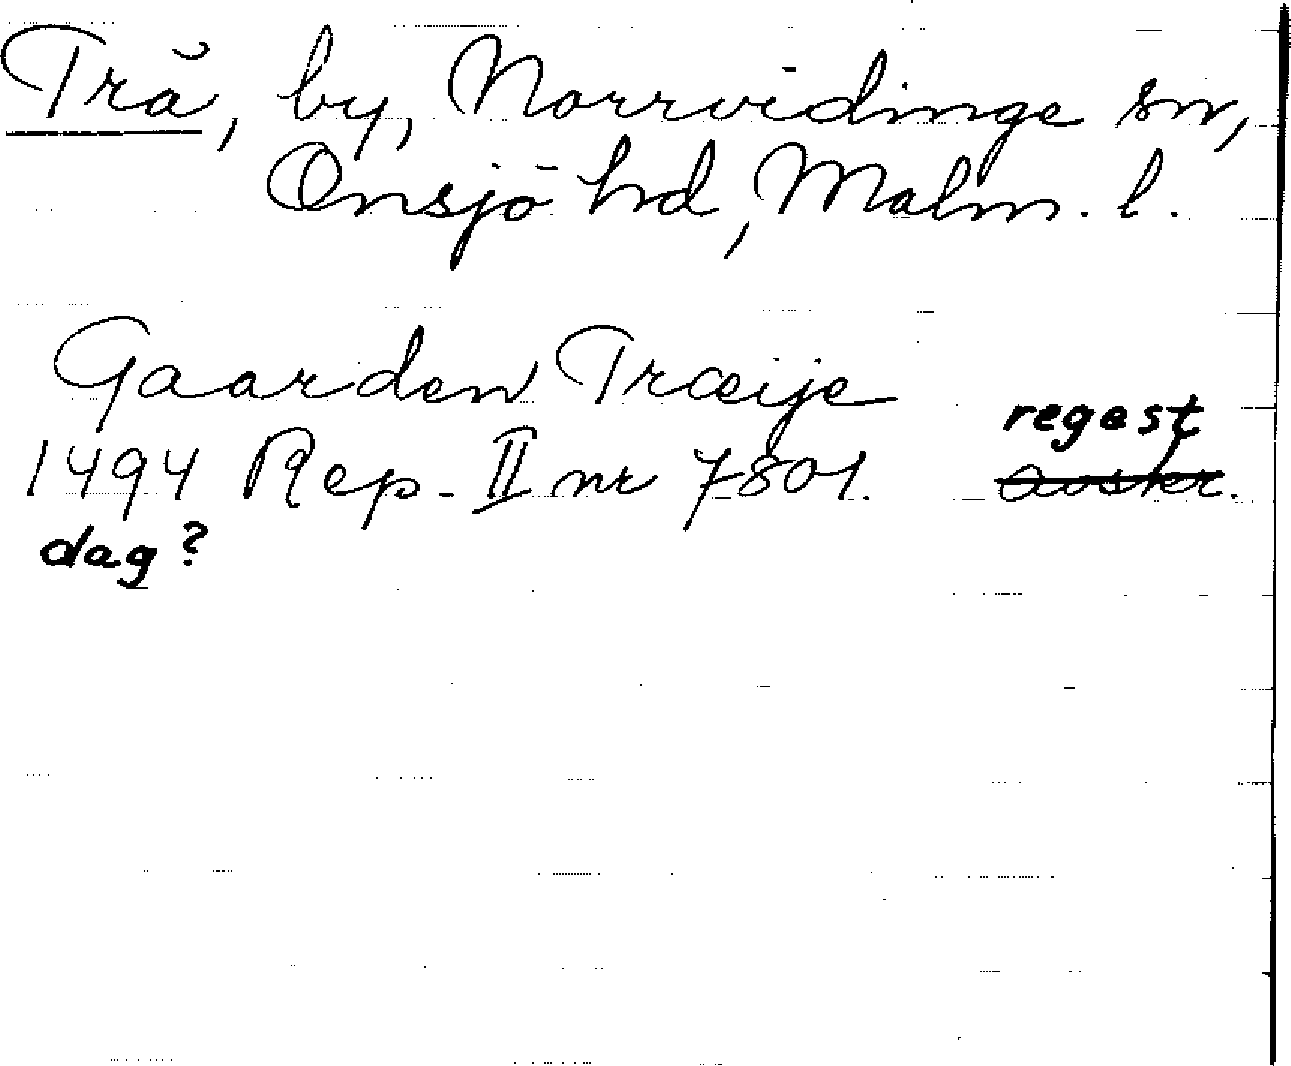 Trä, by, Norrvidinge sn,
Onsjö hd, Malm. l.
Gaarden Træije
regest
1494 Rep. II nr 7801. avskr.
dag?